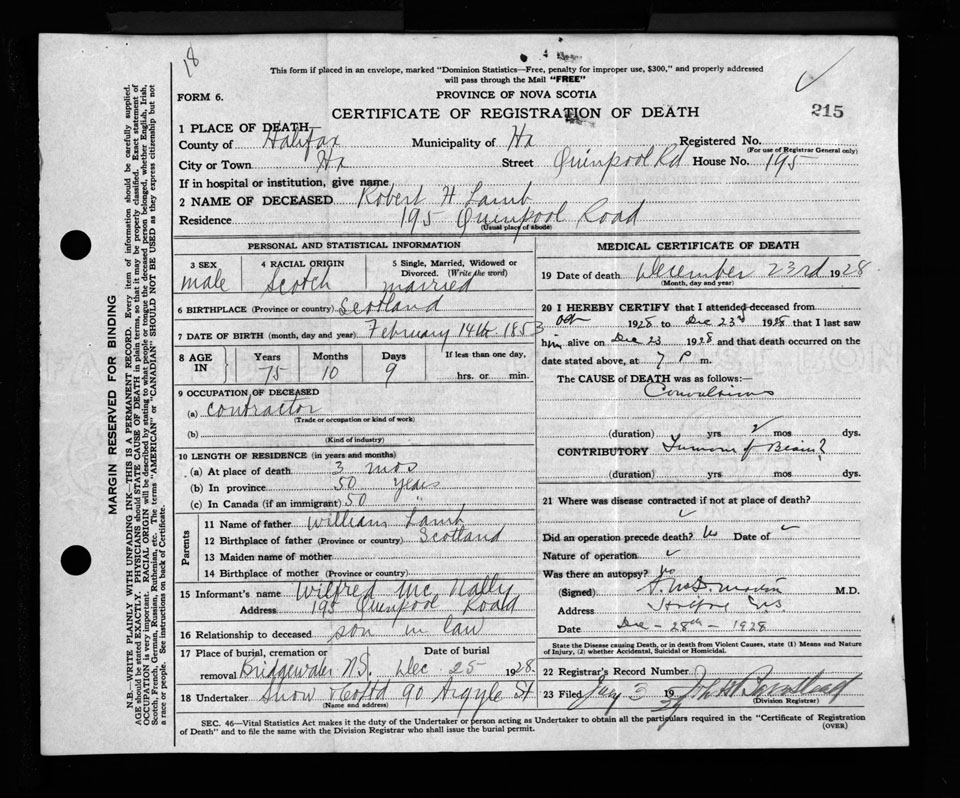 18
This form if placed in an envelope, marked "Dominion Statistics—Free, penalty for improper use, $300," and properly addressed
will pass through the Mail "FREE"
FORM 6.
PROVINCE OF NOVA SCOTIA
CERTIFICATE OF REGISTRATION OF DEATH
215
1 PLACE OF DEATH
County of Halifax Municipality of Hx Registered No.
(For use of Registrar General only)
City or Town Hx Street Quinpool Rd House No. 195
If in hospital or institution, give name
2 NAME OF DECEASED Robert H Lamb
Residence 195 Quinpool Road
(Usual place of abode)
PERSONAL AND STATISTICAL INFORMATION
3 SEX male
4 RACIAL ORIGIN Scotch
5 Single, Married, Widowed or Divorced. (Write the word) married
6 BIRTHPLACE (Province or country) Scotland
7 DATE OF BIRTH (month, day and year) February 14th 1853
8 AGE IN Years 75 Months 10 Days 9 If less than one day, hrs. or min.
9 OCCUPATION OF DECEASED
(a) contractor
(Trade or occupation or kind of work)
(b)
(Kind of industry)
10 LENGTH OF RESIDENCE (in years and months)
(a) At place of death 3 mos
(b) In province 50 years
(c) In Canada (if an immigrant) 50 "
Parents
11 Name of father William Lamb
12 Birthplace of father (Province or country) Scotland
13 Maiden name of mother
14 Birthplace of mother (Province or country)
15 Informant's name Wilfred Mc Nally
Address 195 Quinpool Road
16 Relationship to deceased son in law
17 Place of burial, cremation or removal Bridgewater N.S. Date of burial Dec 25 1928.
18 Undertaker Snow & Co Ltd 90 Argyle St
(Name and address)
MEDICAL CERTIFICATE OF DEATH
19 Date of death December 23rd 1928
(Month, day and year)
20 I HEREBY CERTIFY that I attended deceased from
Oct 1928 to Dec 23rd 1928 that I last saw
him alive on Dec 23 1928 and that death occurred on the
date stated above, at 7 P m.
The CAUSE of DEATH was as follows:—
Convulsions
(duration) yrs 2 mos dys.
CONTRIBUTORY Tumour of Brain?
(duration) yrs. mos dys.
21 Where was disease contracted if not at place of death?
Did an operation precede death? No Date of
Nature of operation
Was there an autopsy? No
(Signed) M.D.
Address Halifax N.S.
Date Dec - 28th - 1928
State the Disease causing Death, or in Death from Violent Causes, state (1) Means and Nature
of Injury, (2) whether Accidental, Suicidal or Homicidal.
22 Registrar's Record Number
23 Filed Jany 3 1929
(Division Registrar)
SEC. 46—Vital Statistics Act makes it the duty of the Undertaker or person acting as Undertaker to obtain all the particulars required in the "Certificate of Registration
of Death" and to file the same with the Division Registrar who shall issue the burial permit.
(OVER)
MARGIN RESERVED FOR BINDING
N.B.—WRITE PLAINLY WITH UNFADING INK—THIS IS A PERMANENT RECORD. Every item of information should be carefully supplied.
AGE should be stated EXACTLY. PHYSICIANS should STATE CAUSE OF DEATH in plain terms, so that it may be properly classified. Exact statement of
OCCUPATION is very important. RACIAL ORIGIN will be described by stating to what people or tongue the deceased person belonged, whether English, Irish,
Scotch, French, German, Russian, Ruthenian, etc. The terms "AMERICAN" or "CANADIAN" SHOULD NOT BE USED as they express citizenship but not
a race or people. See instructions on back of Certificate.